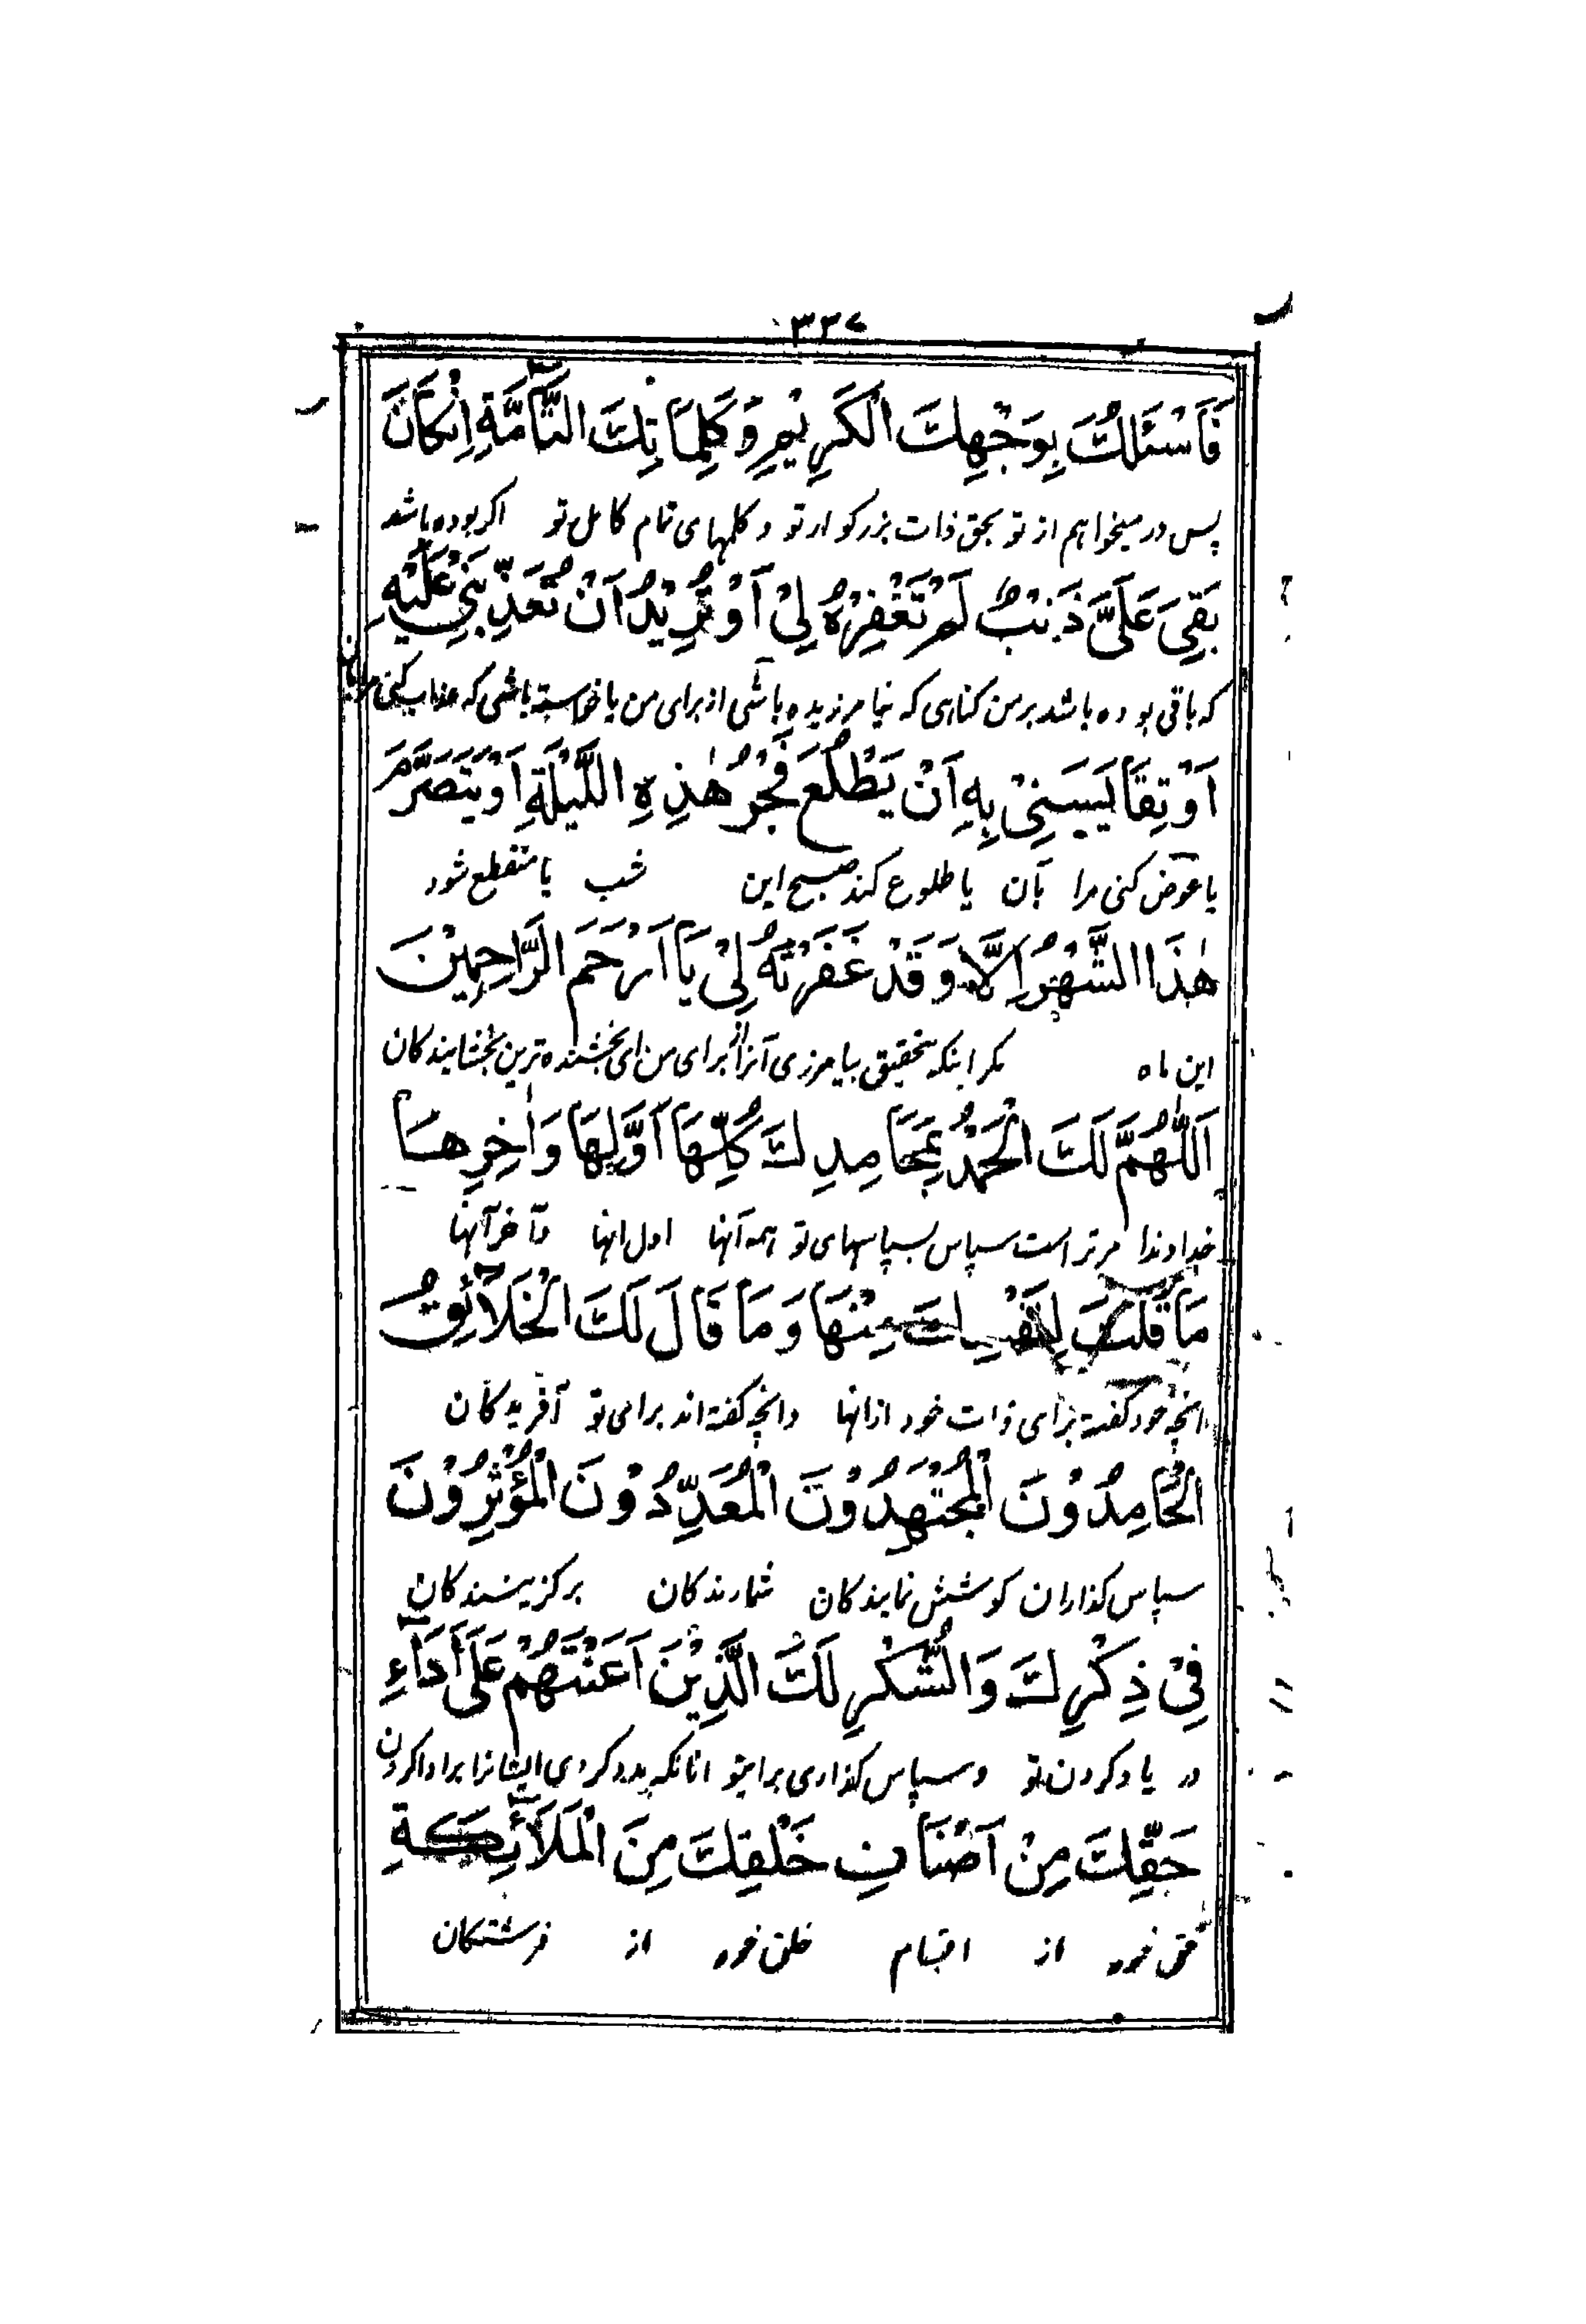 ۳۳۷
فَاَسْئَلُكَ بِوَجْهِكَ الْكَرِيْمِ وَكَلِمَاتِكَ التَّآمَّةِ اِنْ كَانَ
پس در میخواهم از تو بحق ذات بزرکوار تو و کلمهای تمام کامل تو اکر بوده باشد
بَقِىَ عَلَىَّ ذَنْبٌ لَمْ تَغْفِرْهُ لِىْ اَوْ تُرِيْدُ اَنْ تُعَذِّبَنِىْ عَلَيْهِ
که باقی بوده باشد بر من کناهی که نیامرزیده باشی از برای من یا خواسته باشی که عذاب کنی مرا بان
اَوْ تُقَايِسَنِىْ بِهِ اَنْ يَطْلُعَ فَجْرُ هٰذِهِ اللَّيْلَةِ اَوْ يَتَصَرَّمَ
یا عوض کنی مرا بآن یا طلوع کند صبح این شب یا منقطع شود
هٰذَا الشَّهْرُ اِلَّا وَقَدْ غَفَرْتَهُ لِىْ يَا اَرْحَمَ الرَّاحِمِيْنَ
این ماه مکر اینکه بتحقیق بیامرزی آنرا از برای من ای بخشنده ترین بخشایندکان
اَللّٰهُمَّ لَكَ الْحَمْدُ بِمَحَامِدِكَ كُلِّهَا اَوَّلِهَا وَاٰخِرِهَا
خداوندا مر تراست سپاس بسپاسهای تو همه آنها اول انها و آخر آنها
مَا قُلْتَ لِنَفْسِكَ مِنْهَا وَمَا قَالَ لَكَ الْخَلَآئِقُ
انچه خود کفتهٔ برای ذات خود از انها و انچه کفته اند برای تو آفریدکان
الْحَامِدُوْنَ الْمُجْتَهِدُوْنَ الْمُعَدِّدُوْنَ الْمُؤْثِرُوْنَ
سپاس کذاران کوشش نمایندکان شمارندکان برکزینندکان
فِىْ ذِكْرِكَ وَالشُّكْرِ لَكَ الَّذِيْنَ اَعَنْتَهُمْ عَلَى اَدَآءِ
در یاد کردن تو و سپاس کذاری برایتو انانکه مدد کردی ایشانرا بر ادا کردن
حَقِّكَ مِنْ اَصْنَافِ خَلْقِكَ مِنَ الْمَلَآئِكَةِ
حق خود از اقسام خلق خود از فرشتکان